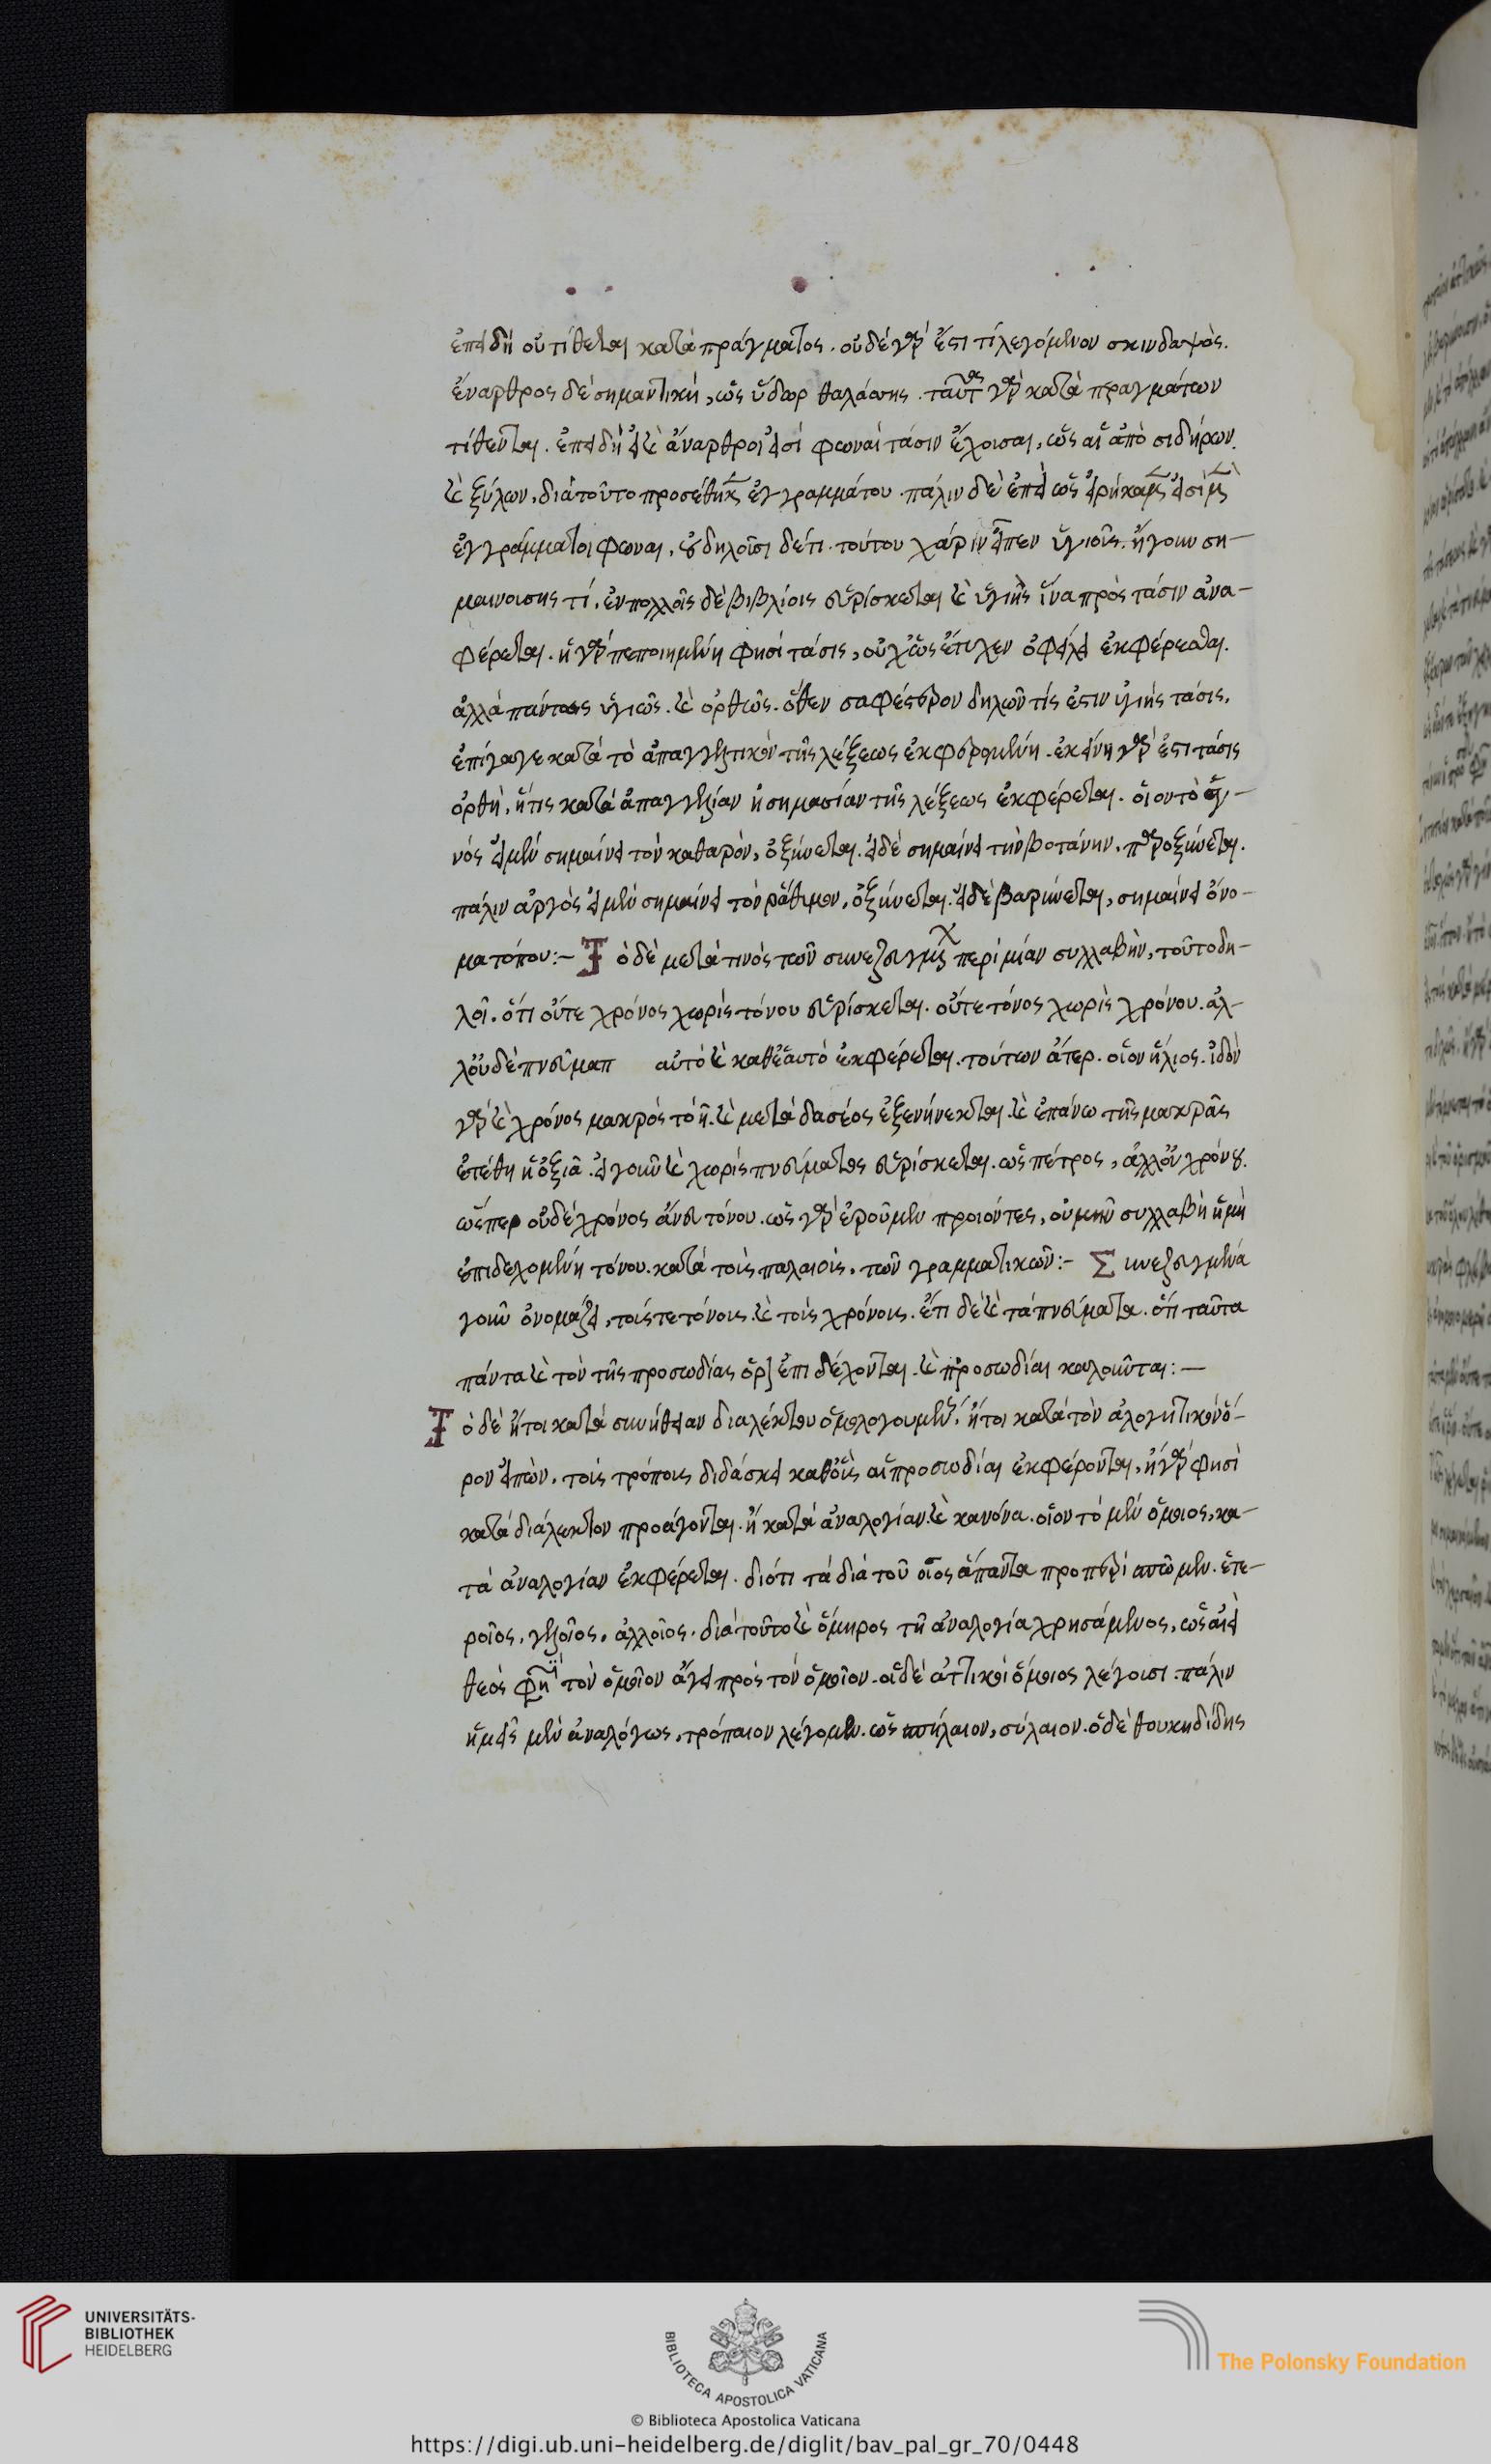 ἐπειδὴ οὐ τίθεται κατὰ πράγματος. οὐδὲ γάρ ἐστι τὶ λεγόμενον σκινδαψὸς.
ἔναρθρος δὲ σημαντικὴ, ὡς ὕδωρ θαλάσσης. ταῦτα γὰρ κατὰ πραγμάτων
τίθενται. ἐπειδὴ καὶ ἄναρθροι εἰσὶ φωναὶ τάσιν ἔχουσαι, ὡς αἱ ἀπὸ σιδήρων
καὶ ξύλων, διὰ τοῦτο προσέθηκεν ἐγγραμμάτου. πάλιν δὲ ἐπεὶ ὡς εἰρήκαμεν εἰσὶ μὲν
ἐγγράμματοι φωναι, οὐ δηλοῦσι δέ τι. τούτου χάριν εἶπεν ὑγιοῦς. ἤγουν ση-
μαινούσης τί. ἐν πολλοῖς δὲ βιβλίοις εὑρίσκεται καὶ ὑγιὴς ἵνα πρὸς τάσιν ἀνα-
φέρεται. ἡ γὰρ πεποιημένη φησὶ τάσις, οὐχ ὡς ἔτυχεν ὀφείλει ἐκφέρεσθαι.
ἀλλὰ πάντως ὑγιῶς. καὶ ὀρθῶς. ὅθεν σαφέστερον δηλῶν τίς ἐστιν ὑγιὴς τάσις,
ἐπήγαγε κατὰ τὸ ἀπαγγελτικὸν τῆς λέξεως ἐκφερομένη. ἐκείνη γάρ ἐστι τάσις
ὀρθὴ, ἥτις κατὰ ἀπαγγελίαν ἢ σημασίαν τῆς λέξεως ἐκφέρεται. οἷον τὸ ἁγ-
νός εἰ μὲν σημαίνει τὸν καθαρὸν, ὀξύνεται. εἰ δὲ σημαίνει τὴν βοτάνην, παροξύνεται.
πάλιν ἀργὸς εἰ μὲν σημαίνει τὸν ῥάθυμον, ὀξύνεται. εἰ δὲ βαρύνεται, σημαίνει ὄνο-
μα τόπου:- Τὸ δὲ μετά τινὸς τῶν συνεζευγμένων περὶ μίαν συλλαβὴν, τοῦτο δη-
λοῖ. ὅτι οὔτε χρόνος χωρὶς τόνου εὑρίσκεται. οὔτε τόνος χωρὶς χρόνου. ἀλ-
λ' οὐδὲ πνεῦμα π αὐτὸ καὶ καθ' ἑαυτὸ ἐκφέρεται. τούτων ἄτερ. οἷον ἥλιος. ἰδοὺ
γὰρ καὶ χρόνος μακρὸς τὸ η. καὶ μετὰ δασέος ἐξενήνεκται. καὶ ἐπάνω τῆς μακρᾶς
ἐτέθη ἡ ὀξεῖα. εἰ γοῦν καὶ χωρὶς πνεύματος εὑρίσκεται. ὡς πέτρος, ἀλλ' οὐ χρόνου.
ὥσπερ οὐδὲ χρόνος ἄνευ τόνου. ὡς γὰρ ἐροῦμεν προιόντες, οὐ μὴν συλλαβὴ ἡ μὴ
ἐπιδεχομένη τόνου. κατὰ τοὺς παλαιοὺς. τῶν γραμματικῶν:- Συνεζευγμένα
γοῦν ὀνομάζει, τούς τε τόνους. καὶ τοὺς χρόνους. ἔτι δὲ καὶ τὰ πνεύματα. ὅτι ταῦτα
πάντα καὶ τὸν τῆς προσωδίας ὅρον ἐπιδέχονται. καὶ προσωδίαι καλοῦνται:-
Τὸ δὲ ἤτοι κατὰ συνήθειαν διαλέκτου ὁμολογουμένην. ἤτοι κατὰ τὸν ἀλογητικὸν ὅ-
ρον εἰπὼν, τοὺς τρόπους διδάσκει καθ' οὓς αἱ προσωδίαι ἐκφέρονται. ἢ γὰρ φησὶ
κατὰ διάλεκτον προάγονται. ἢ κατὰ ἀναλογίαν καὶ κανόνα. οἷον τὸ μὲν ὅμοιος, κα-
τὰ ἀναλογίαν ἐκφέρεται. διότι τὰ διὰ τοῦ οιος ἅπαντα προπερισπῶμεν. ἑτε-
ροῖος, γελοῖος, ἀλλοῖος. διὰ τοῦτο καὶ ὅμηρος τῆ ἀναλογία χρησάμενος, ὡς αἰεὶ
θεὸς φησὶ τὸν ὁμοῖον ἄγει πρὸς τὸν ὁμοῖον. οἱ δὲ ἀττικοὶ ὅμοιος λέγουσι. πάλιν
ἡμεῖς μὲν ἀναλόγως, τρόπαιον λέγομεν. ὡς σπήλαιον, σύλαιον. ὁ δὲ θουκηδίδης
UNIVERSITÄTS-
BIBLIOTHEK
HEIDELBERG
BIBLIOTECA APOSTOLICA VATICANA
The Polonsky Foundation
© Biblioteca Apostolica Vaticana
https://digi.ub.uni-heidelberg.de/diglit/bav_pal_gr_70/0448